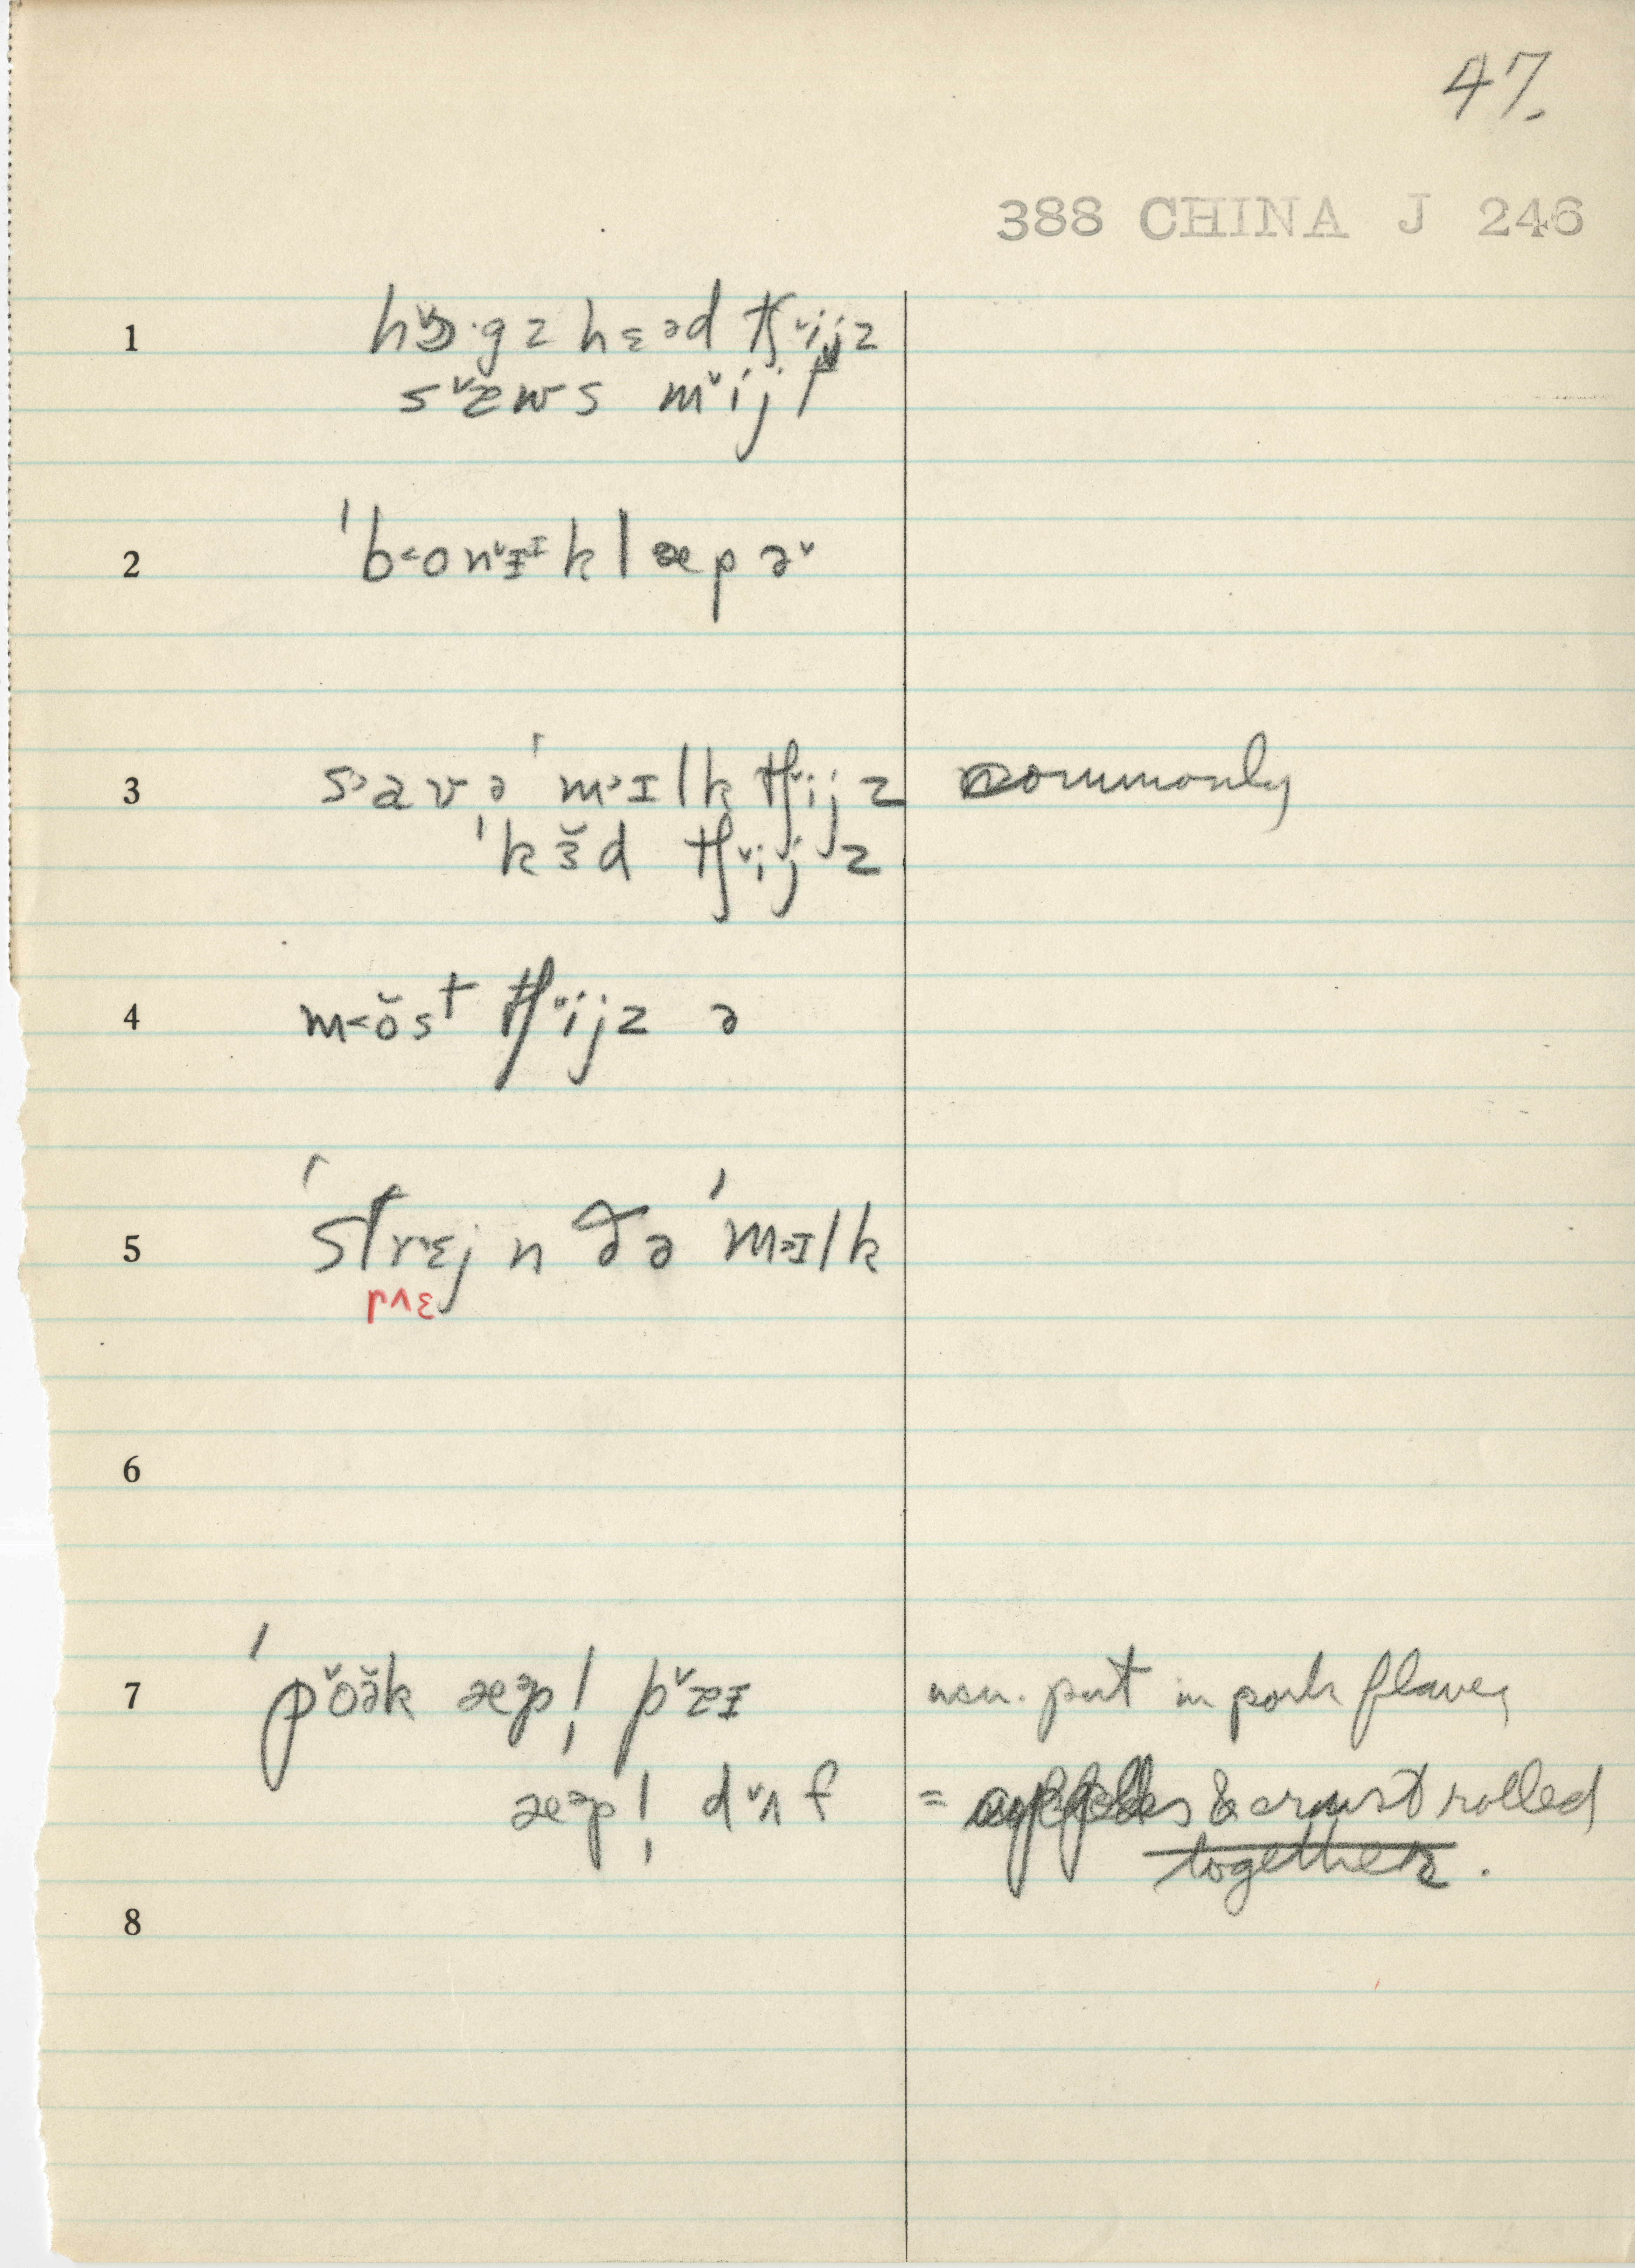 47.
388 CHINA J 246
1 h˅ɔ·gz hɛəd tʃ˅ijz
s˅æws m˅ijt
2 ˈb˂on˅ɪᶦklæpə˅
3 s˃avəˈm˃ɪlk tʃ˅ijz commonly
ˈkɜ̌d tʃ˅ijz
4 m˂ǒst tʃ˅ijz ə
5 ˈstr˅ɛjn ðə ˈm˃ɪlk
r˄ɛ
6
7 ˈp˅oə̌k æᵊpl̩ p˅aɪ usu. put in pork flavor
æᵊpl̩ d˅ʌf = apples & crust rolled
together.
8